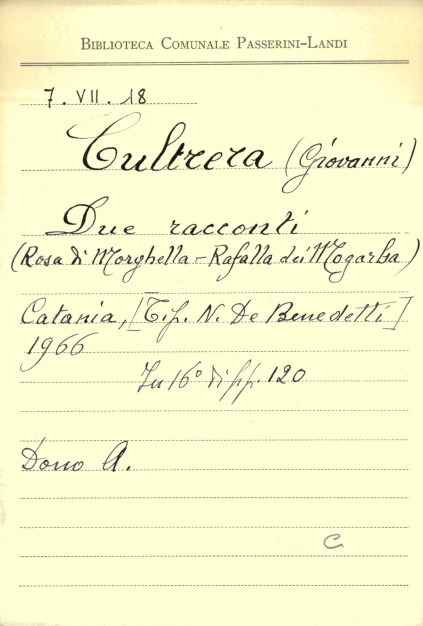 BIBLIOTECA COMUNALE PASSERINI-LANDI
7. VII. 18
Cultrera (Giovanni)
Due racconti
(Rosa di Morghella - Rafalla dei Mogarba)
Catania, [Tip. N. De Benedetti]
1966
In 16° di pp. 120
Dono A.
C